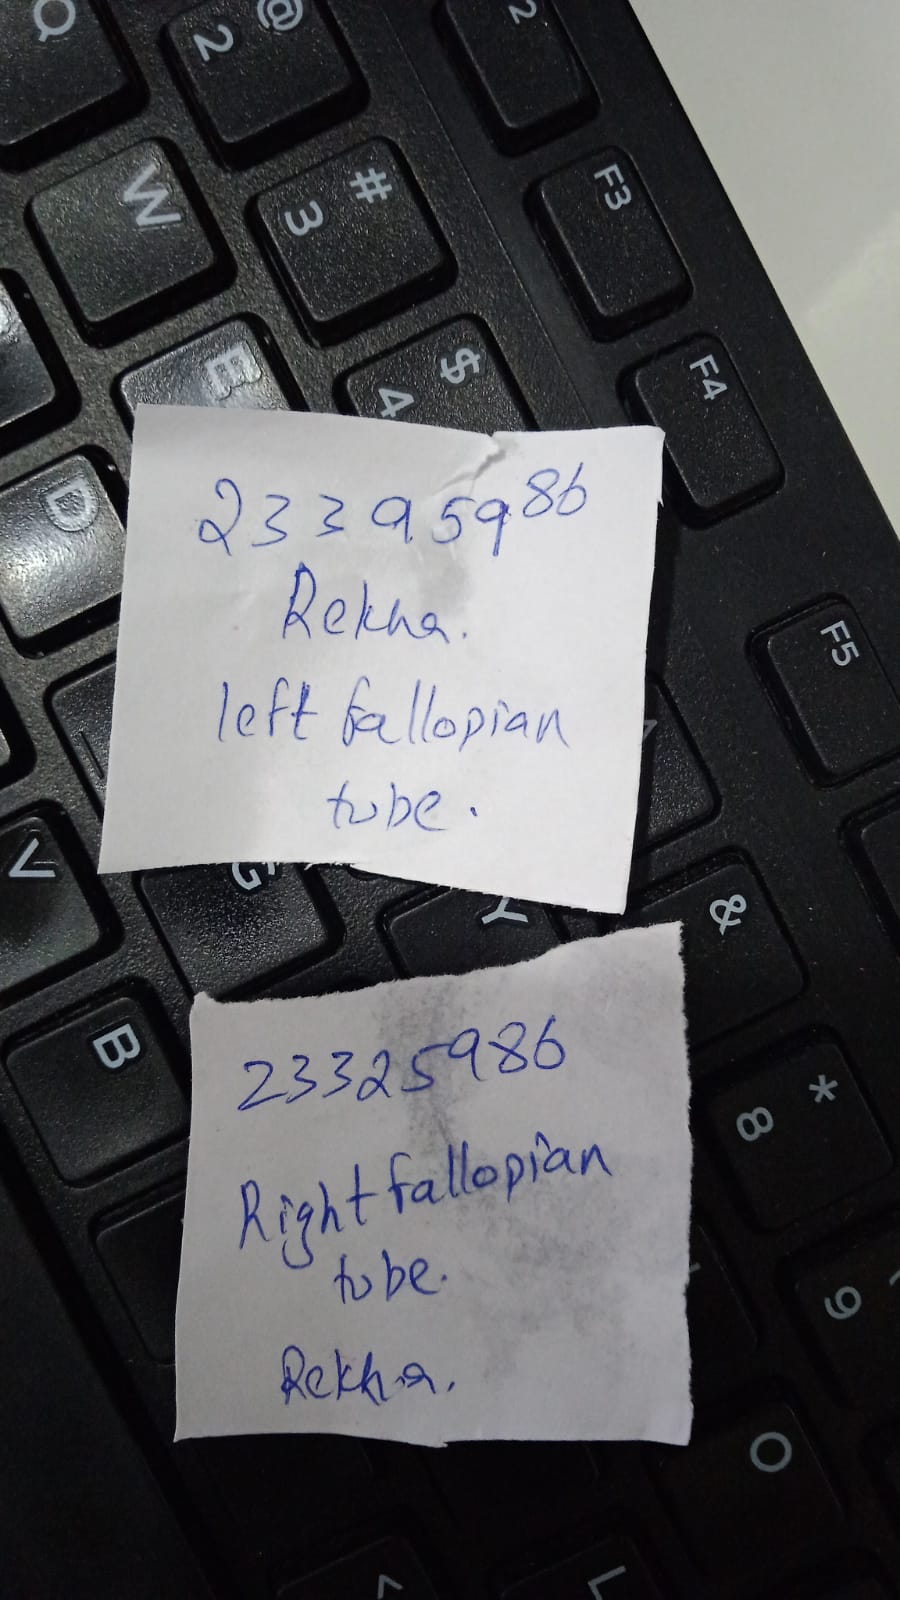 Q
@
2
2
W
#
3
F3
E
$
4
F4
D
23395986
Rekha.
left fallopian
tube.
F5
V
G
Y
&
B
23325986
Right fallopian
tube.
Rekha.
*
8
9
O
L